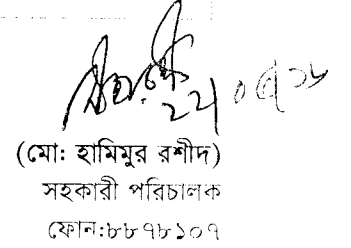 ২২।০৫।১৮
(মো: হামিমুর রশীদ)
সহকারী পরিচালক
ফোন:৮৮৭৮১০৭